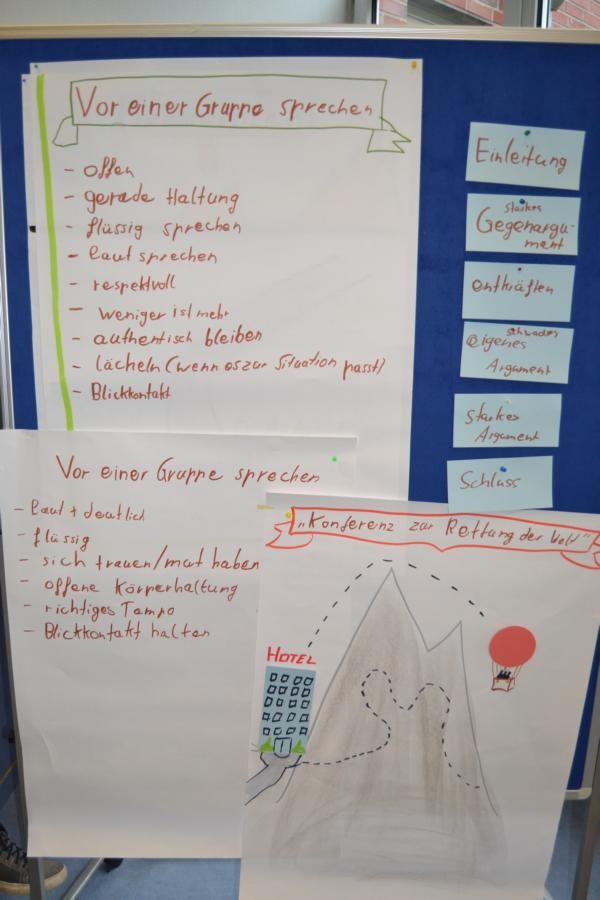 Vor einer Gruppe sprechen
- offen
- gerade Haltung
- flüssig sprechen
- laut sprechen
- respektvoll
- weniger ist mehr
- authentisch bleiben
- lächeln (wenn es zur Situation passt)
- Blickkontakt
Einleitung
starkes
Gegenargu-
ment
entkräften
schwaches
eigenes
Argument
starkes
Argument
Schluss
Vor einer Gruppe sprechen
- laut + deutlich
- flüssig
- sich trauen/mut haben
- offene Körperhaltung
- richtiges Tempo
- Blickkontakt halten
„Konferenz zur Rettung der Welt"
HOTEL